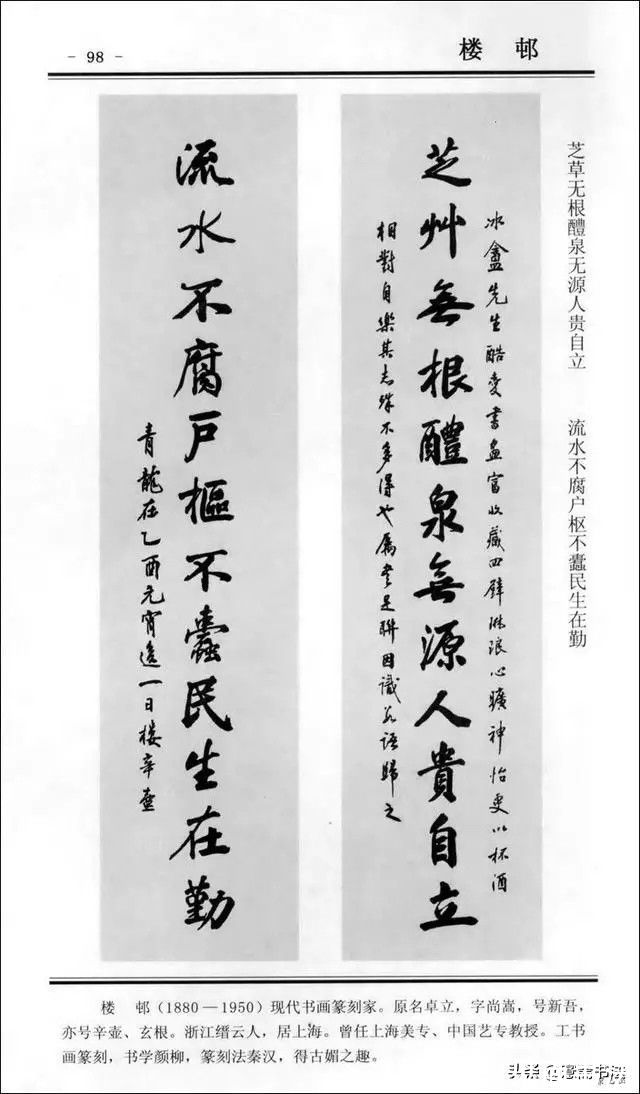 - 98 -
楼 邨
芝草无根醴泉无源人贵自立 流水不腐户枢不蠹民生在勤
芝艸無根醴泉無源人貴自立
冰盦先生酷爱書画富收藏四壁琳琅心曠神怡更以杯酒
相對自樂其志殊不多得也属書是聯因識数語歸之
流水不腐戶樞不蠹民生在勤
青龍在乙酉元宵後一日楼辛壶
楼 邨(1880—1950)现代书画篆刻家。原名卓立,字尚嵩,号新吾,
亦号辛壶、玄根。浙江缙云人,居上海。曾任上海美专、中国艺专教授。工书
画篆刻,书学颜柳,篆刻法秦汉,得古媚之趣。
头条